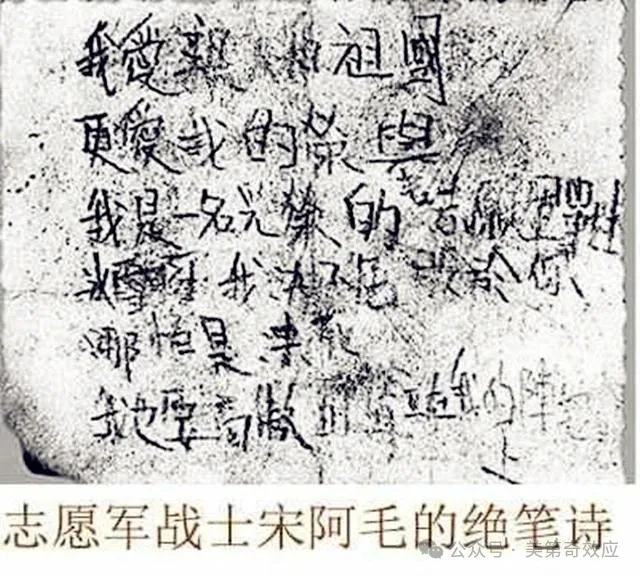 我愛親祖國
更愛我的榮譽
我是一名光榮的
冰雪啊我決不屈於你
哪怕是凍
我也要高傲立在我的陣地
上
志愿军战士宋阿毛的绝笔诗
公众号 · 美第奇效应